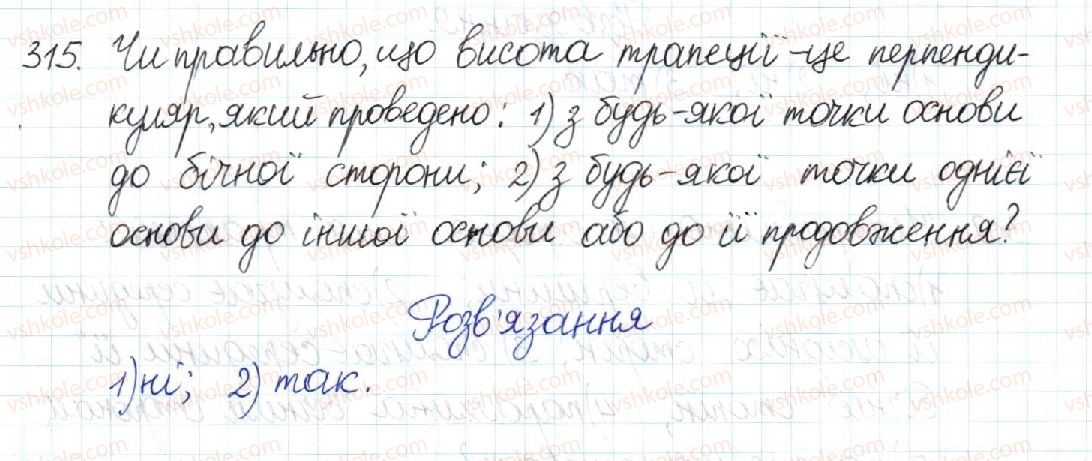 315. Чи правильно, що висота трапеції - це перпенди-
куляр, який проведено: 1) з будь-якої точки основи
до бічної сторони; 2) з будь-якої точки однієї
основи до іншої основи або до її продовження?
Розв'язання
1) ні; 2) так.